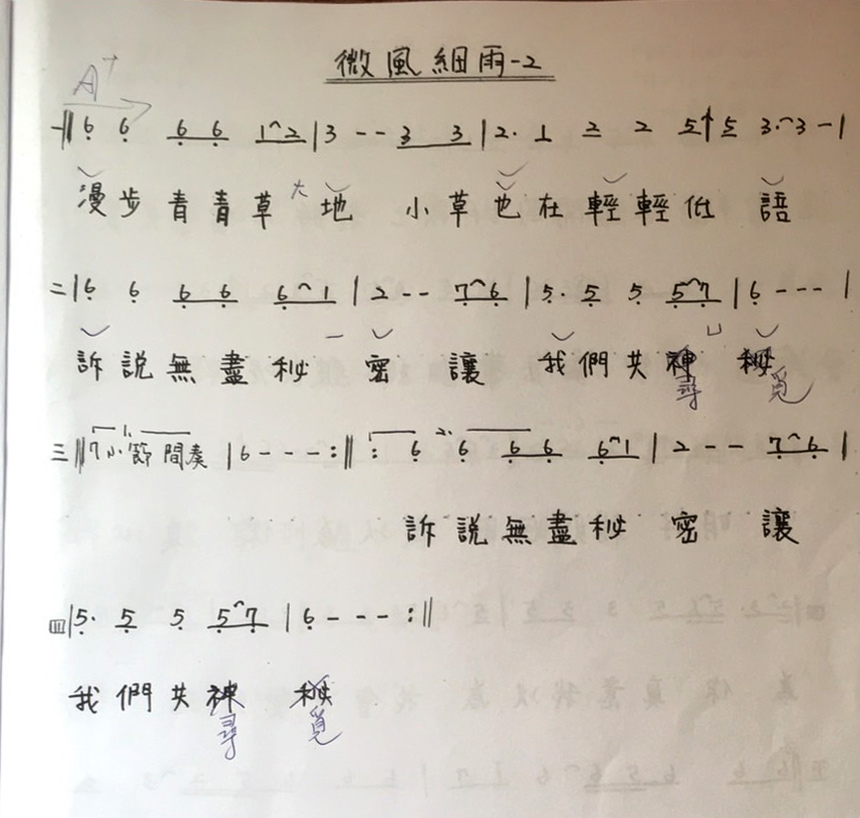 微風細雨-2
A
一‖6 6 6 6 1 2 | 3 - - 3 3 | 2· 1 2 2 5 5 3·3 - |
漫步青青草大地 小草也在輕輕低語
二|6 6 6 6 6 1 | 2 - - 7 6 | 5· 5 5 5 7 | 6 - - - |
訴說無盡秘一密讓 我們共神秘
尋 覓
三‖7小節間奏 | 6 - - - :‖ : 6 6 6 6 6 1 | 2 - - 7 6 |
1. 2.
訴說無盡秘密讓
四|5· 5 5 5 7 | 6 - - - :‖
我們共神秘
尋 覓